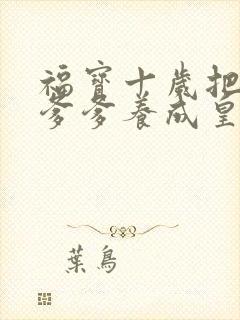 福寶十歲把
爹爹養成皇
葉鳥